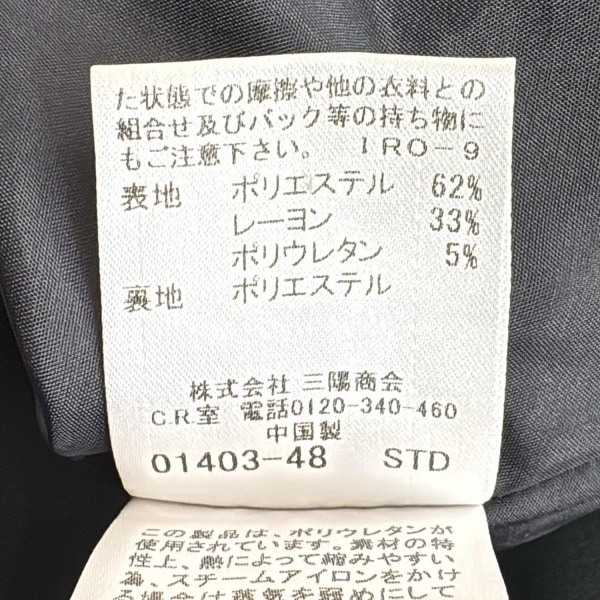 た状態での摩擦や他の衣料との
組合せ及びバック等の持ち物に
もご注意下さい。 IRO-9
表地 ポリエステル 62%
レーヨン 33%
ポリウレタン 5%
裏地 ポリエステル
株式会社 三陽商会
C.R.室 電話0120-340-460
中国製
01403-48 STD
この製品は、ポリウレタンが
使用されています。素材の特
性上、熱によって縮みやすい
為、スチームアイロンをかけ
る場合は蒸気を弱めにして